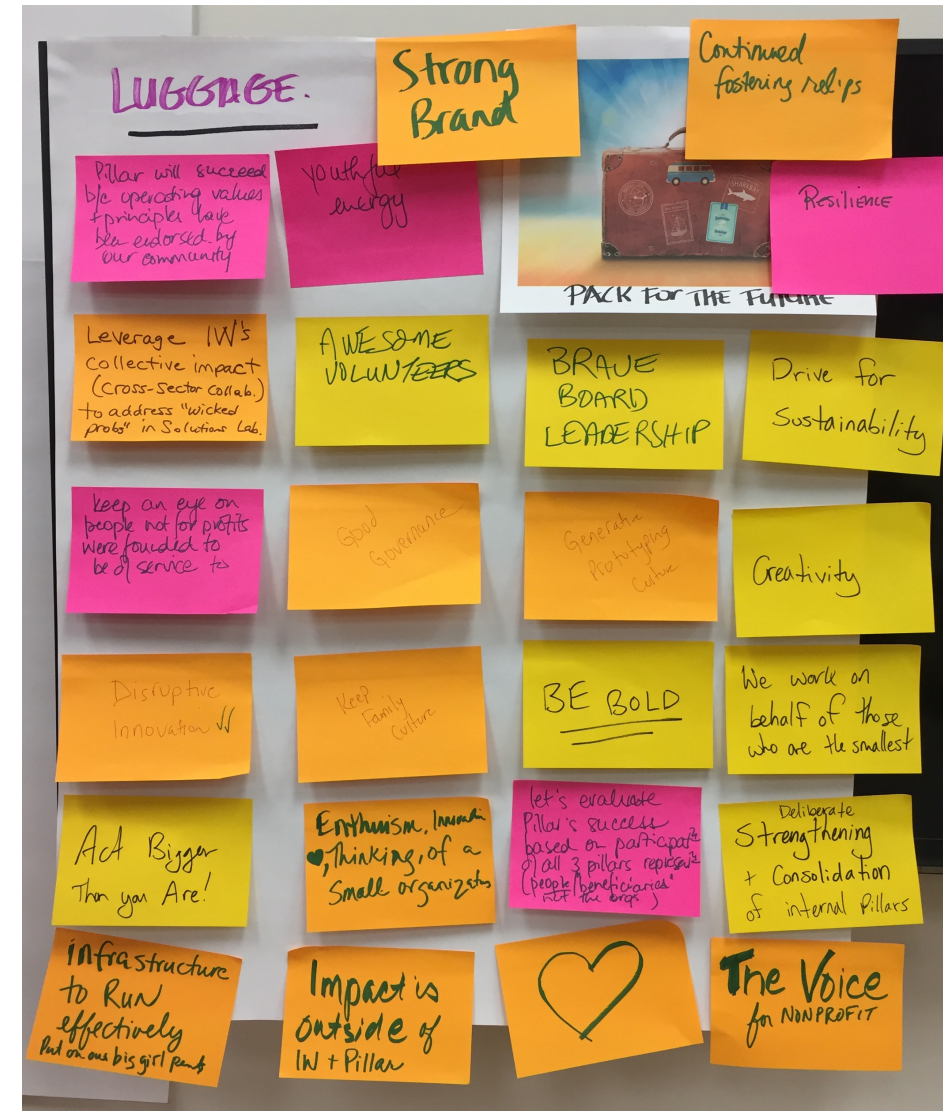 LUGGAGE.
Strong
Brand
Continued
fostering relips
Pillar will succeed
b/c operating values
+ principles have
been endorsed by
our community
youthful
energy
SHARKS!
Resilience
PACK FOR THE FUTURE
Leverage IW's
collective impact
(cross-sector collab.)
to address "wicked
probs" in Solutions Lab.
AWESOME
VOLUNTEERS
BRAVE
BOARD
LEADERSHIP
Drive for
Sustainability
keep an eye on
people not for profits
were founded to
be of service to
Good
Governance
Generative
Prototyping
Culture
Creativity
Disruptive
Innovation
Keep
Family
Culture
BE BOLD
We work on
behalf of those
who are the smallest
Act Bigger
Than you Are!
Enthusism,
Thinking, of a
Small organizatos
let's evaluate
Pillar's success
based on
of all 3 pillars
(people/beneficiaries
not the orgs)
Deliberate
Strengthening
+ Consolidation
of internal Pillars
infrastructure
to RUN
effectively
Put on our big girl pants
Impact is
outside of
IW + Pillar
The Voice
for NONPROFIT